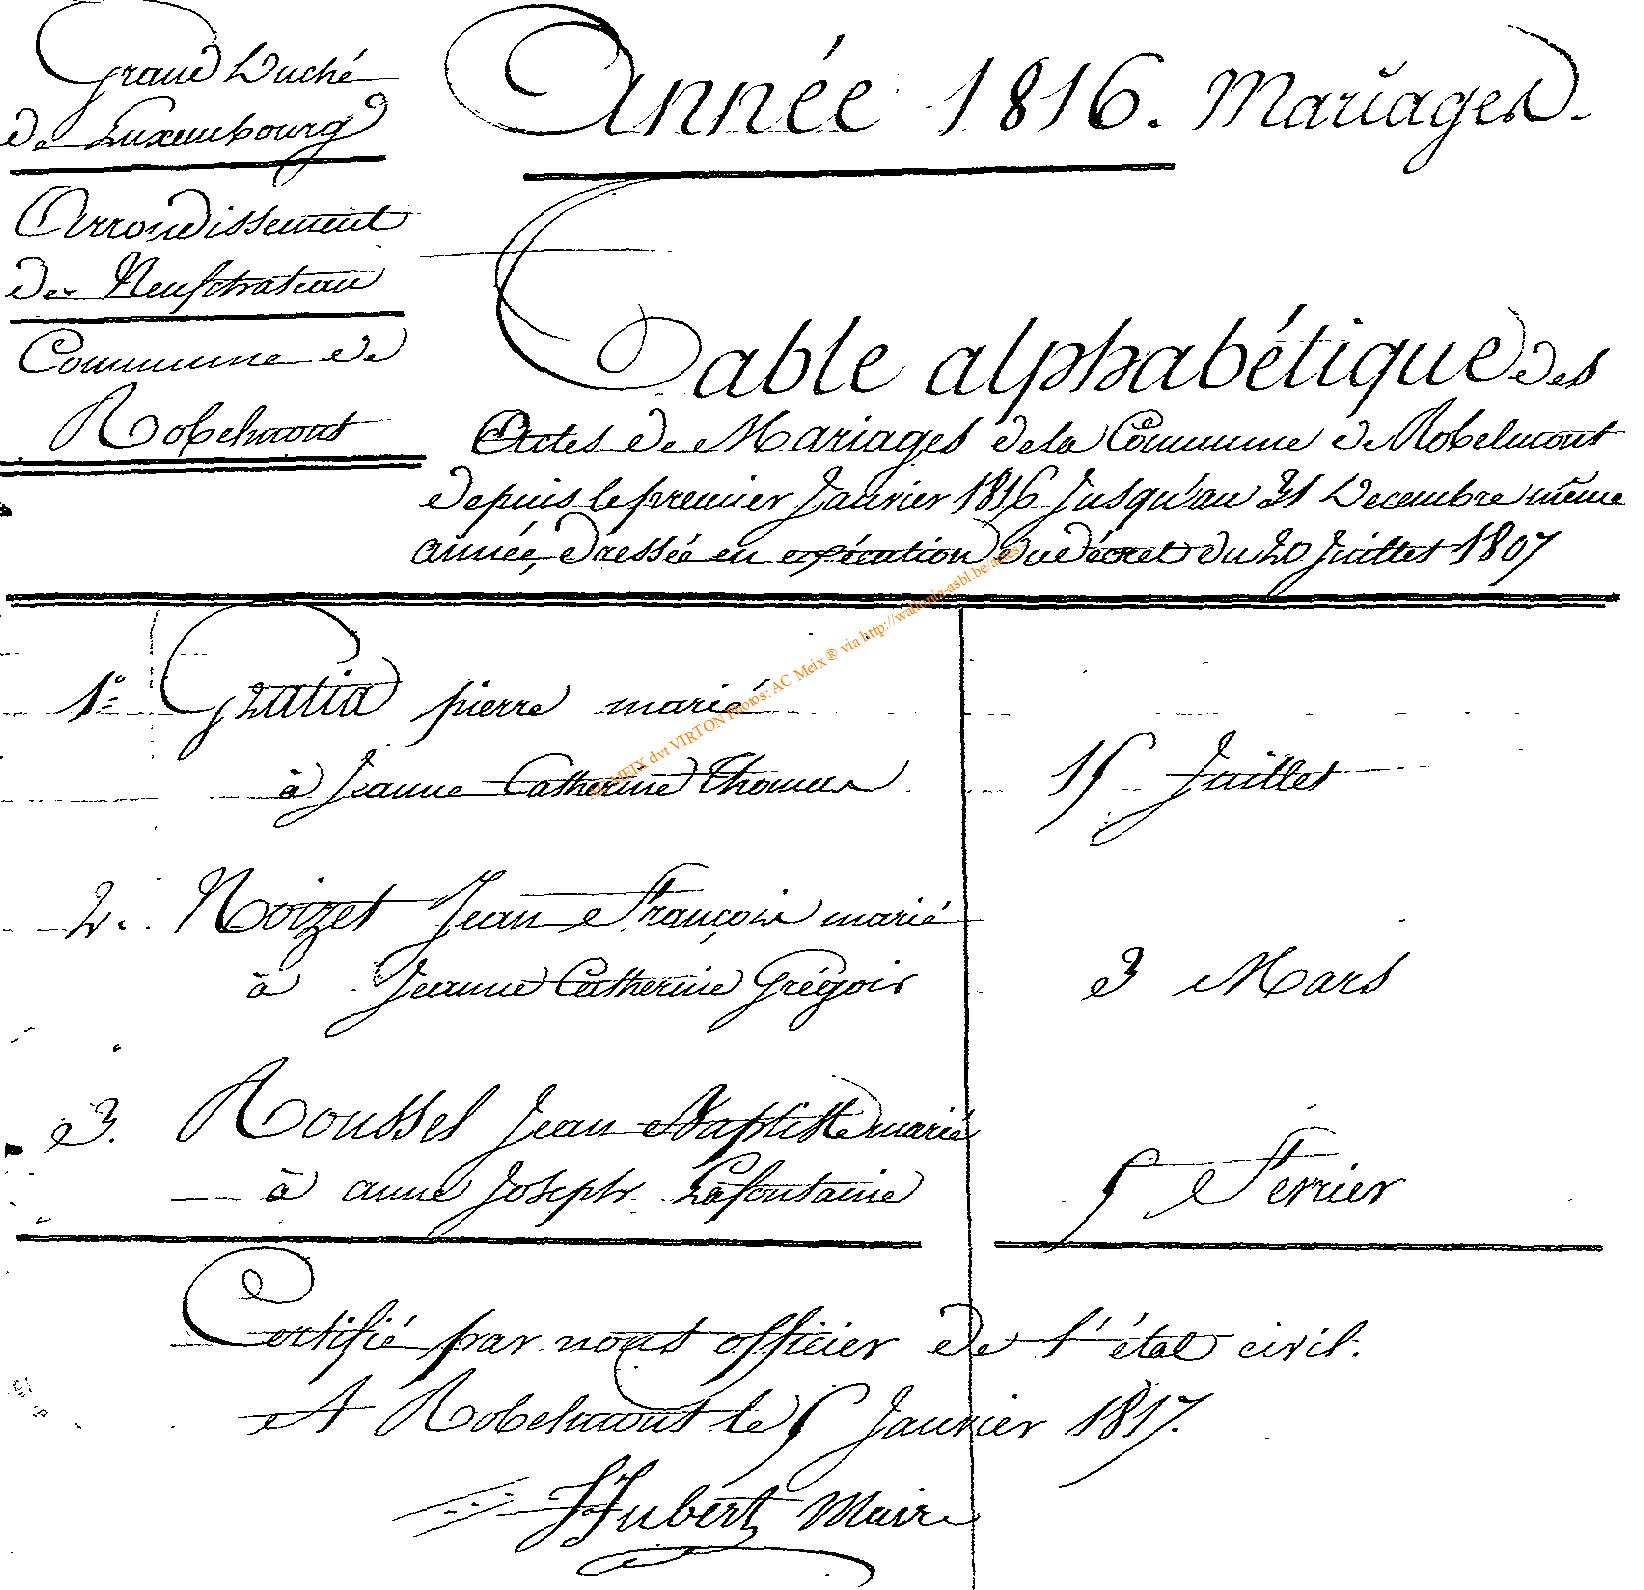 Grand Duché
de Luxembourg
Arrondissement
de Neufchateau
Commune de
Robelmont
Année 1816. Mariages.
Table alphabétique des
Actes de Mariages de la Commune de Robelmont
depuis le premier Janvier 1816 Jusqu'au 31 Decembre même
année, dressée en exécution du décret du 20 Juillet 1807
1° Gratia pierre marié
à Jeanne Catherine Thomas 15 Juillet
2. Noizet Jean François marié
à Jeanne Catherine Grégoir 3 Mars
3. Roussel Jean Baptiste marié
à anne Joseph Lafontaine 5 Fevrier
Certifié par nous officier de l'état civil.
A Robelmont le 5 Janvier 1817.
Hubert Maire
MEIX dvt VIRTON Photos: AC Meix ® via http://wallonia-asbl.be/